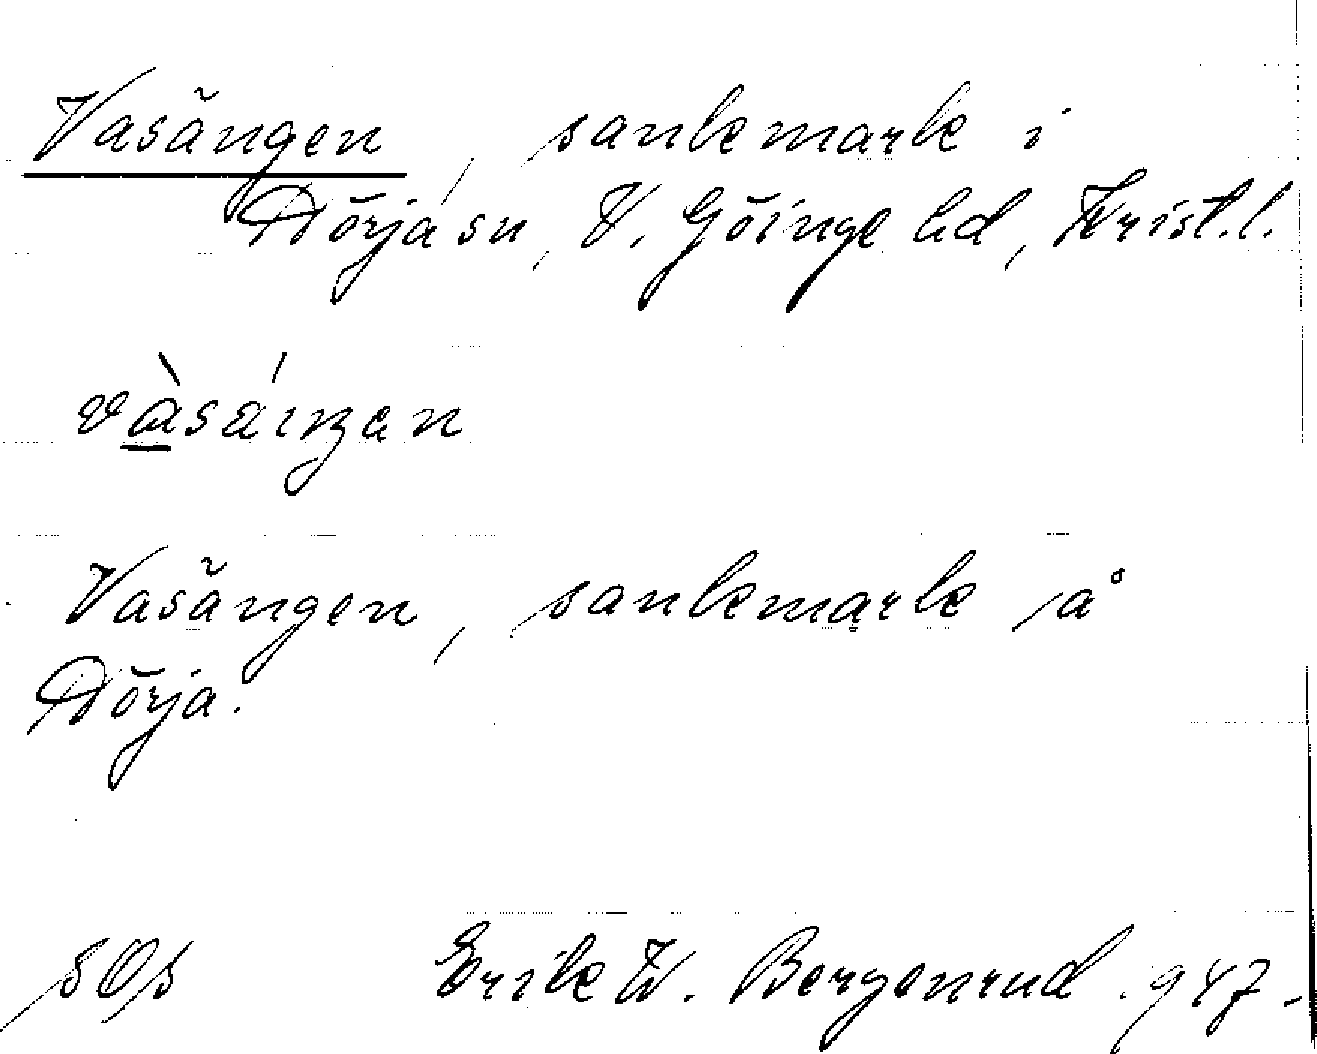 Vasängen, sankmark i
Dörja sn, V. Göinge hd, Krist.l.
vàsáiŋən
Vasängen, sankmark på
Dörja.
sOs Erik W. Bergenrud 947.